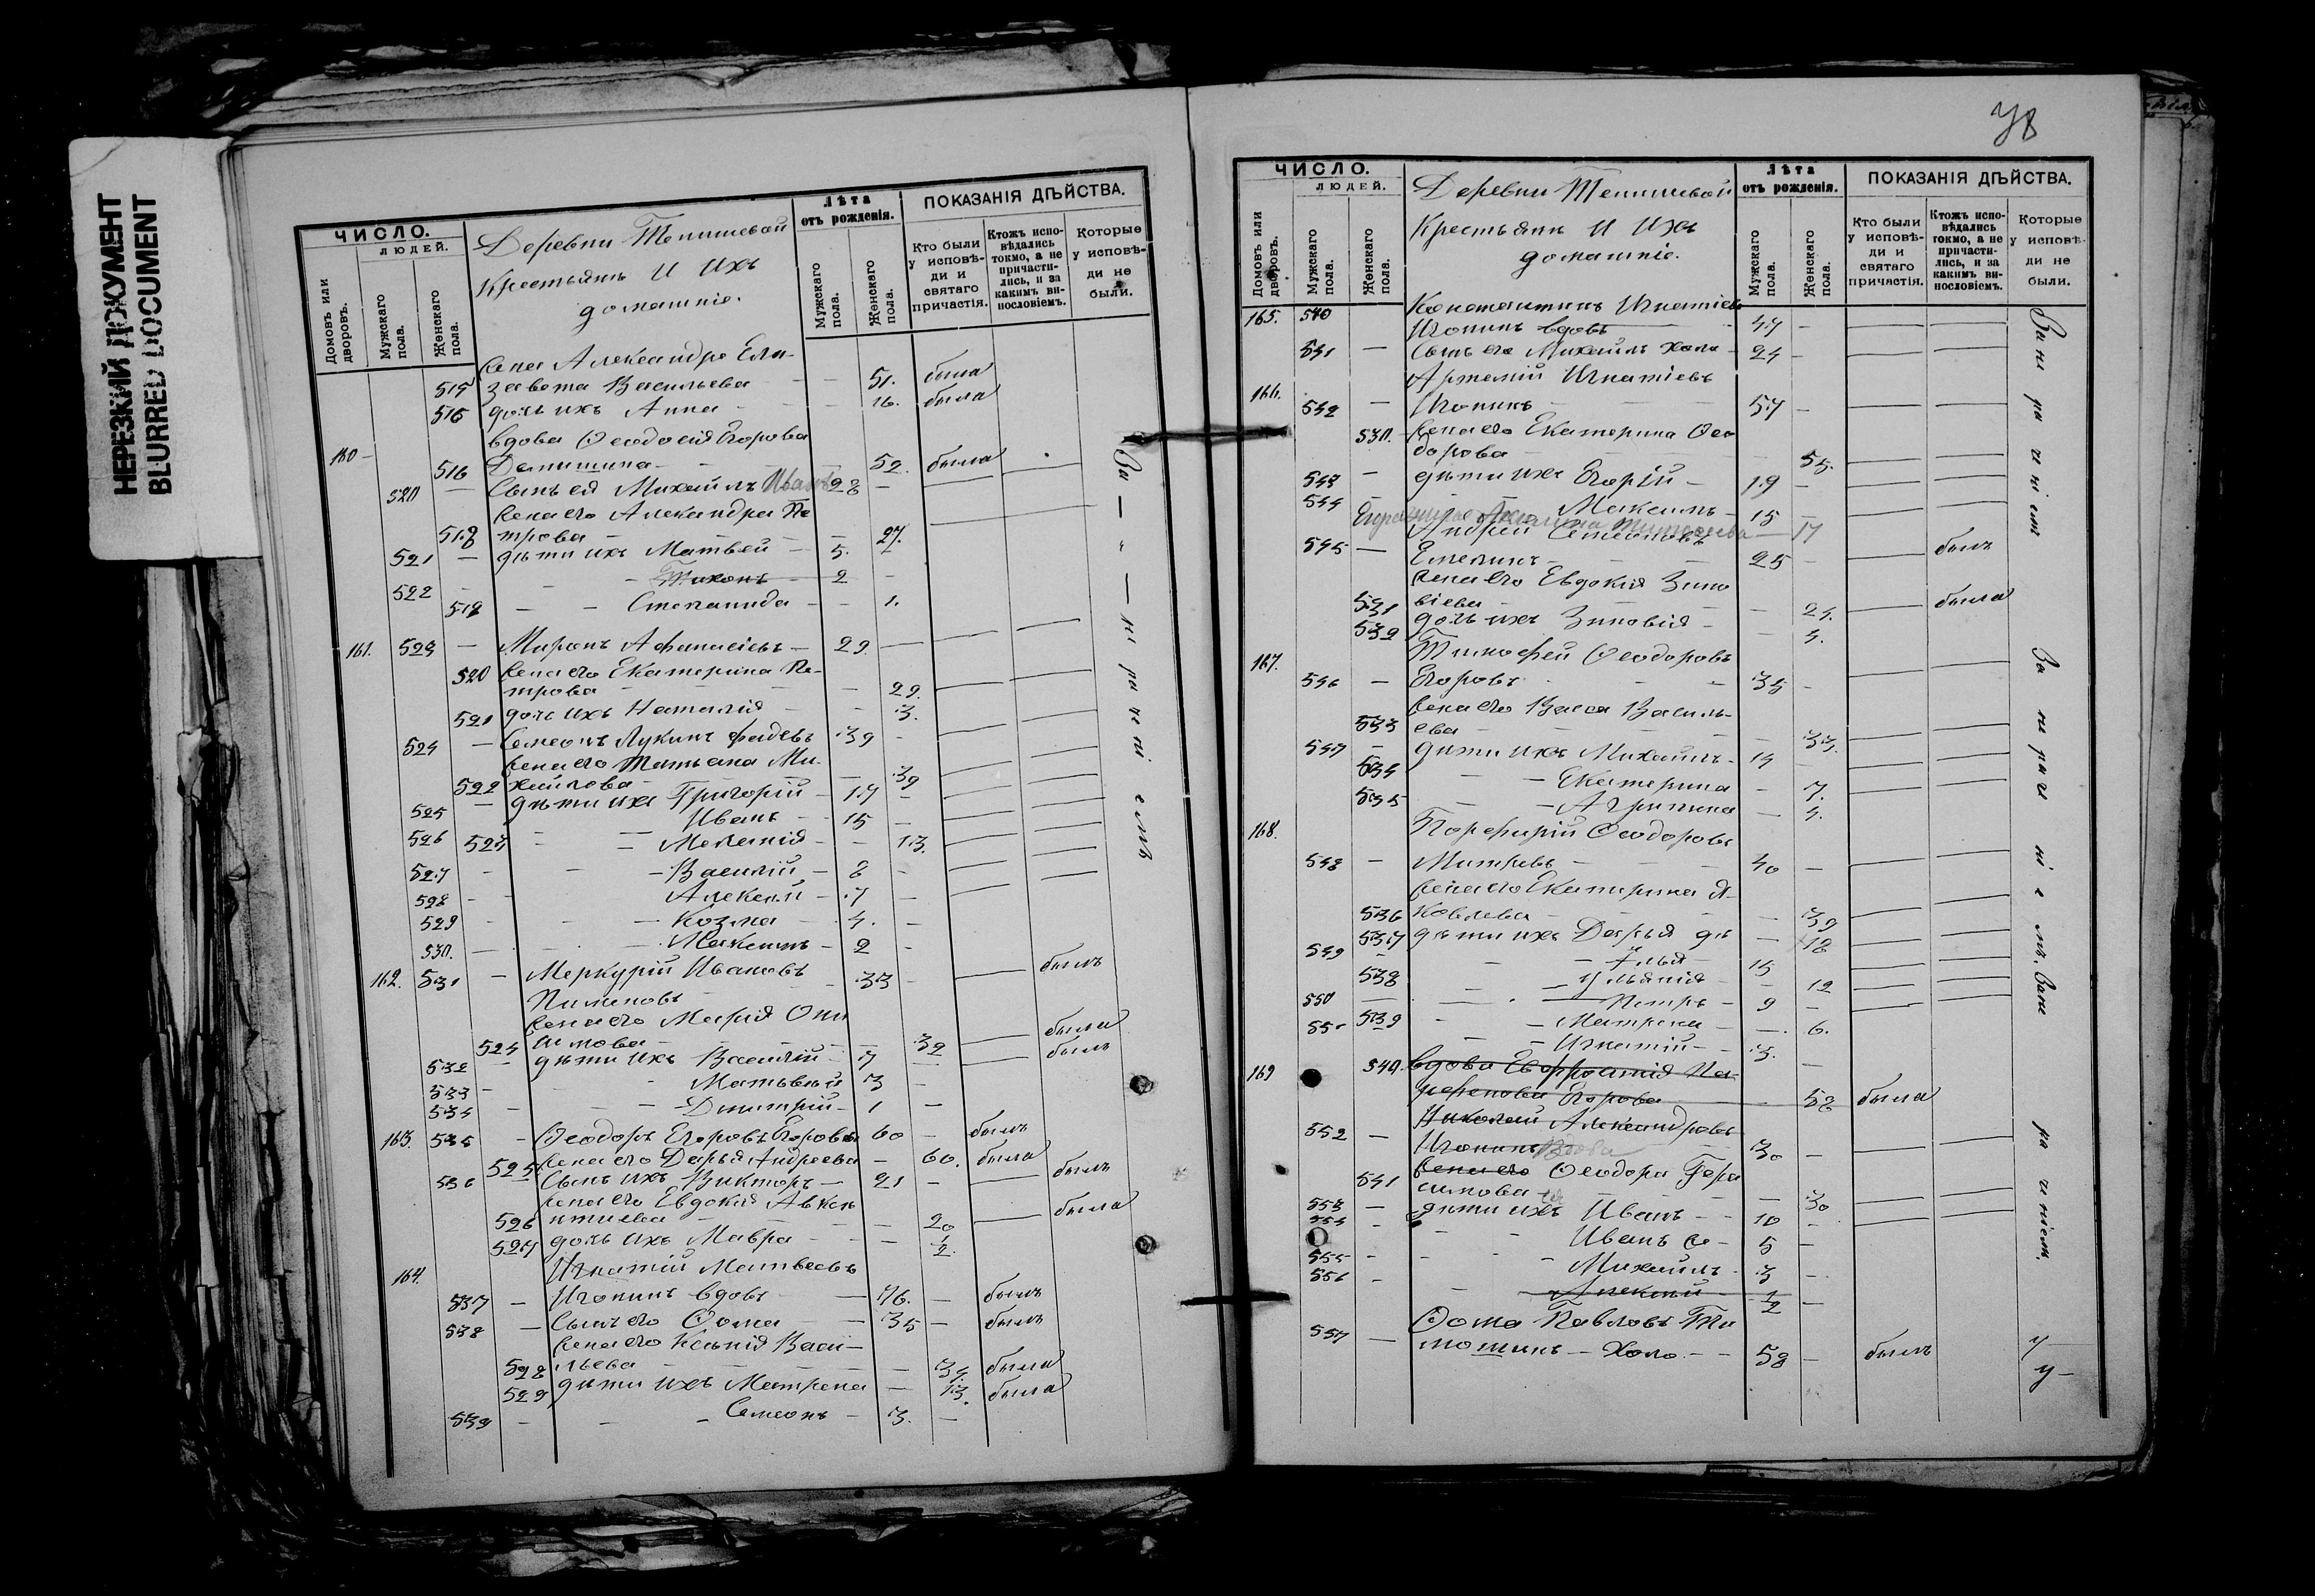 НЕРЕЗКИЙ ДОКУМЕНТ
BLURRED DOCUMENT
ЧИСЛО.
ЛЮДЕЙ.
Домовъ или дворовъ.
Мужскаго пола.
Женскаго пола.
Деревни Тенишевой
Крестьянъ и ихъ
домашніе.
Лѣта
отъ рожденія.
Мужскаго пола.
Женскаго пола.
ПОКАЗАНІЯ ДѢЙСТВА.
Кто были у исповѣди и святаго причастія.
Ктожъ исповѣдались токмо, а не причастились, и за какимъ винословіемъ.
Которые у исповѣди не были.
жена Александра Ели-
завета Васильева - - 51. была
дочь ихъ Анна - - 16. была
160 вдова Ѳеодосія Егорова
516 Данишина - 52. была
520 — Сынъ ея Михаилъ 28 —
жена его Александра Пе
518 трова - - 27.
521 — дѣти ихъ Матвей - 5.
522 - - Тихонъ - 2 -
519 - - Степанида - - 1.
161. 523 — Миронъ Афанасіевъ - 29. —
520 жена его Екатерина Пе-
трова - - 29.
521 дочь ихъ Наталія - - 3.
524 — Семеонъ Лукинъ Фадѣевъ 39 -
жена его Татьяна Ми-
522 хайлова - 39
525 — дѣти ихъ Григорій - 17 -
526 Иванъ - 15 -
523 - - Меланія - - 13.
527 - - Василій - 8 -
528 - - Алексей - 7 -
529 - - Козма - 4. -
530. - - Максимъ - 2 -
162. 531 — Меркурій Ивановъ
Пименовъ 33 - былъ
жена его Марія
524 - 32 была
532 — дѣти ихъ Василій - 7 былъ
533 - Матьвей 3 -
534 - - Дмитрій - 1 —
163. 535 - Ѳеодоръ Егоровъ Егоровъ 60 - былъ
525 жена его Дарья Андреева - 60. была
536 Сынъ ихъ Викторъ - 21 - былъ
жена его Евдокія Авксе
526 нтиева - 20 была
527 дочь ихъ Мавра - - 1/2.
164. Игнатій Матвеевъ
537 — Игонинъ вдовъ — 76. — былъ
538 — Сынъ его Ѳома — 35 — былъ
жена его Ксенія Васи-
528 льева - - 34. была
529 дѣти ихъ Матрена - 13. была
539 - - Семеонъ - 3. —
За не ра че ні емъ
78
ЧИСЛО.
ЛЮДЕЙ.
Домовъ или дворовъ.
Мужскаго пола.
Женскаго пола.
Деревни Тенишевой
Крестьянъ и ихъ
домашніе.
Лѣта
отъ рожденія.
Мужскаго пола.
Женскаго пола.
ПОКАЗАНІЯ ДѢЙСТВА.
Кто были у исповѣди и святаго причастія.
Ктожъ исповѣдались токмо, а не причастились, и за какимъ винословіемъ.
Которые у исповѣди не были.
165. 540 Константинъ Игнатіевъ
Игонинъ вдовъ - 47 -
541 — Сынъ его Михаилъ холо - 24 -
166. Артемій Игнатіевъ
542 — Игонинъ - 57 -
530. жена его Екатерина Ѳео
дорова - 55.
543 — дѣти ихъ Егорій - 19 -
544 - - Максимъ - 15 -
17
Андрей Семеновъ
545 — Емелинъ - 25 - былъ
жена его Евдокія Зино
531 віева - - 24. была
532 дочь ихъ Зиновія - - 4.
167. Тимофей Ѳеодоровъ
546 - Егоровъ - 35 -
жена его Васса Василь-
533 ева - 33.
547 - дѣти ихъ Михаилъ - 14 -
534 - Екатерина - 7.
535 - Агрипина - 4.
168. Порфирій Ѳеодоровъ
548 - Митревъ - 40 -
жена его Екатерина Я-
536 ковлева - - 39
537 дѣти ихъ Дарья дѣ - 18
549 - - Илья - 15
538 - Ульянія - - 12
550 — Петръ - 9 -
539 - Матрена - - 6.
551 - Игнатій - 3. -
169 540. вдова Евфросинія Па-
рфенова Егорова 58 была
Николай Александровъ
552 — Игонинъ Вдова 30 -
541 жена его Ѳеодора Гера
симова - 30
553 — дѣти ихъ Иванъ - 10 -
554 - Иванъ - 5 -
555 - - Михаилъ - 3 -
556 - - Алексей - 1/2 -
Ѳома Павловъ Ти
557 — мошинъ - холо - - 58 - былъ
За не ра че ні емъ
За не ра че ні е мъ. За не
ра че ніемъ.